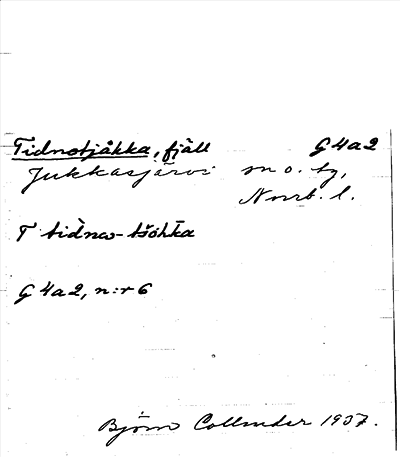 Tidnotjåkka, fjäll G 4a2
Jukkasjärvi sn o. tg,
Norrb. l.
T tidno-tšohka
G 4a2, n:r 6
Björn Collinder 1937.